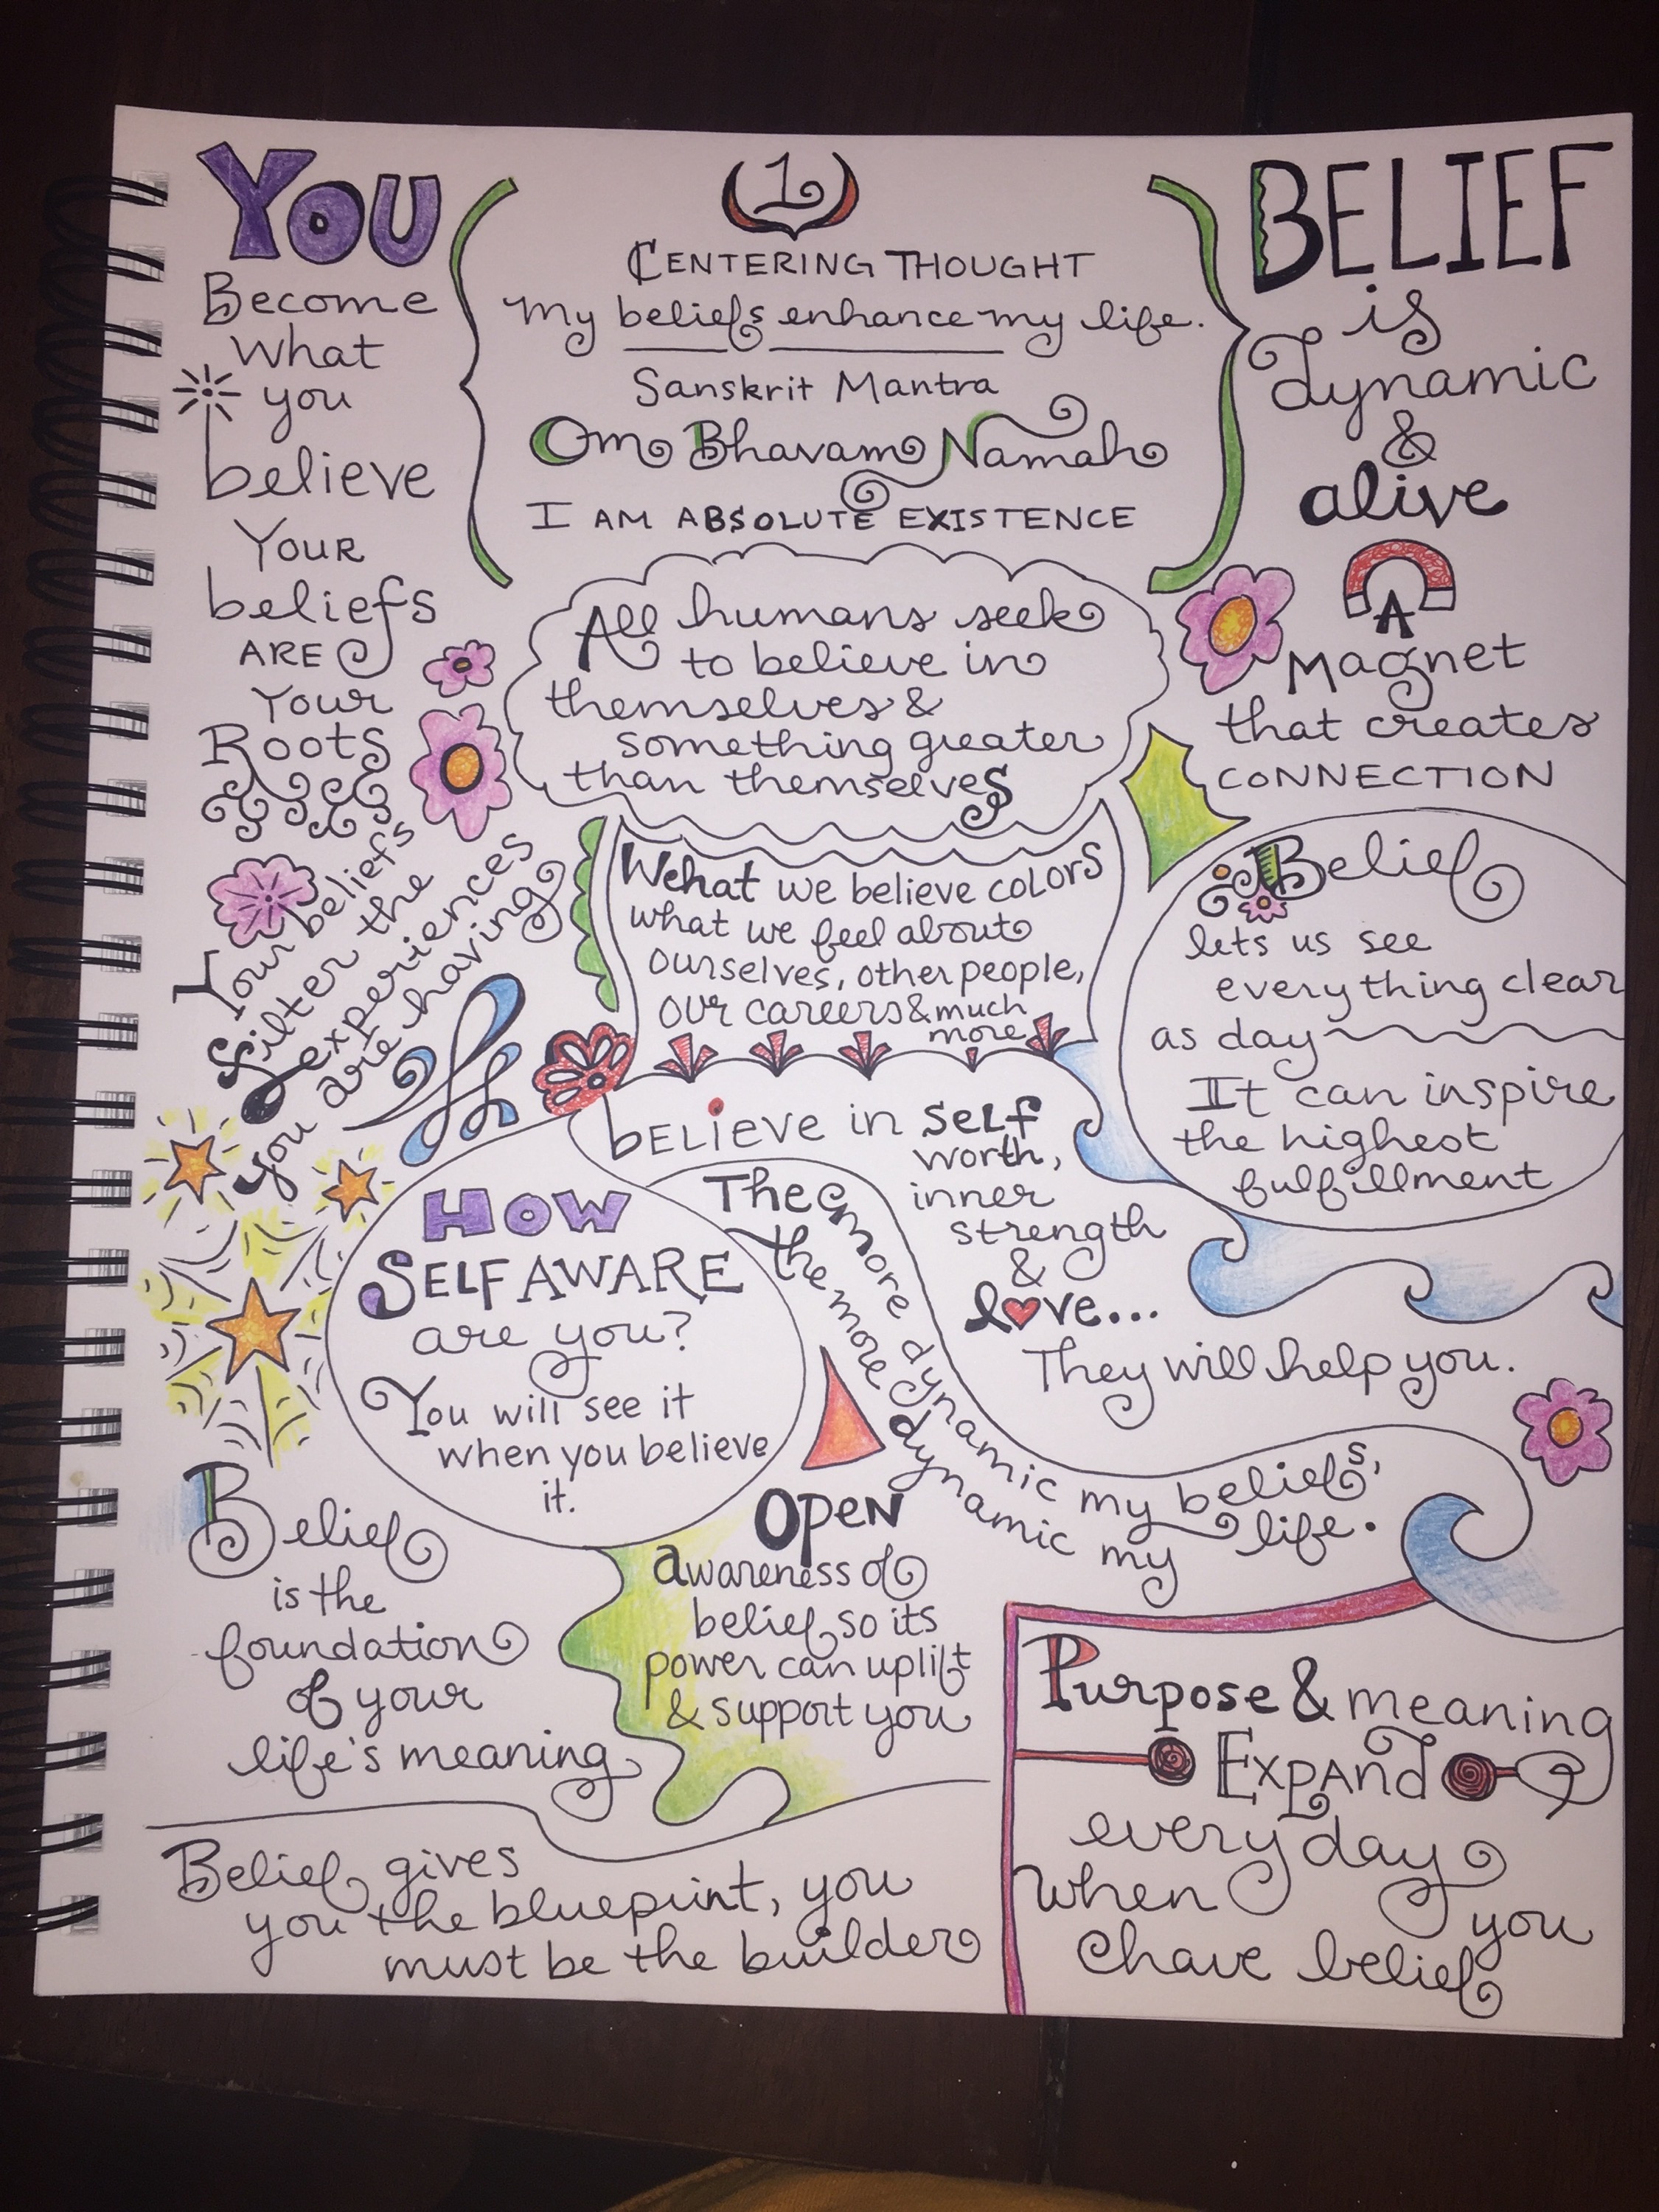 YOU
Become
What
you
believe
YOUR
beliefs
ARE
Your
Roots
1
CENTERING THOUGHT
My beliefs enhance my life.
Sanskrit Mantra
Om Bhavam Namah
I AM ABSOLUTE EXISTENCE
BELIEF
is
dynamic
&
alive
A
Magnet
that creates
CONNECTION
All humans seek
to believe in
themselves &
something greater
than themselves
Your beliefs
filter the
experiences
you are having
What we believe colors
what we feel about
ourselves, other people,
our careers & much
more
Belief
lets us see
everything clear
as day
It can inspire
the highest
fulfillment
beLieve in self
worth,
inner
strength
&
love...
They will help you.
HOW
SELF AWARE
are you?
You will see it
when you believe
it.
The more dynamic my beliefs,
the more dynamic my life.
Belief
is the
foundation
of your
life's meaning
Open
awareness of
belief so its
power can uplift
& support you
Purpose & meaning
Expand
every day
when you
have belief
Belief gives
you the blueprint, you
must be the builder